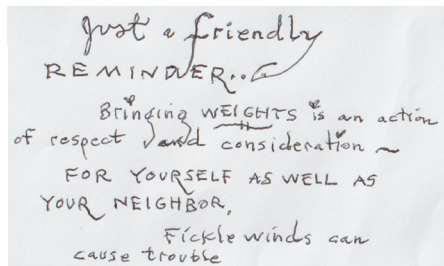 Just a friendly
REMINDER..
Bringing WEIGHTS is an action
of respect and consideration ~
FOR YOURSELF AS WELL AS
YOUR NEIGHBOR,
Fickle winds can
cause trouble